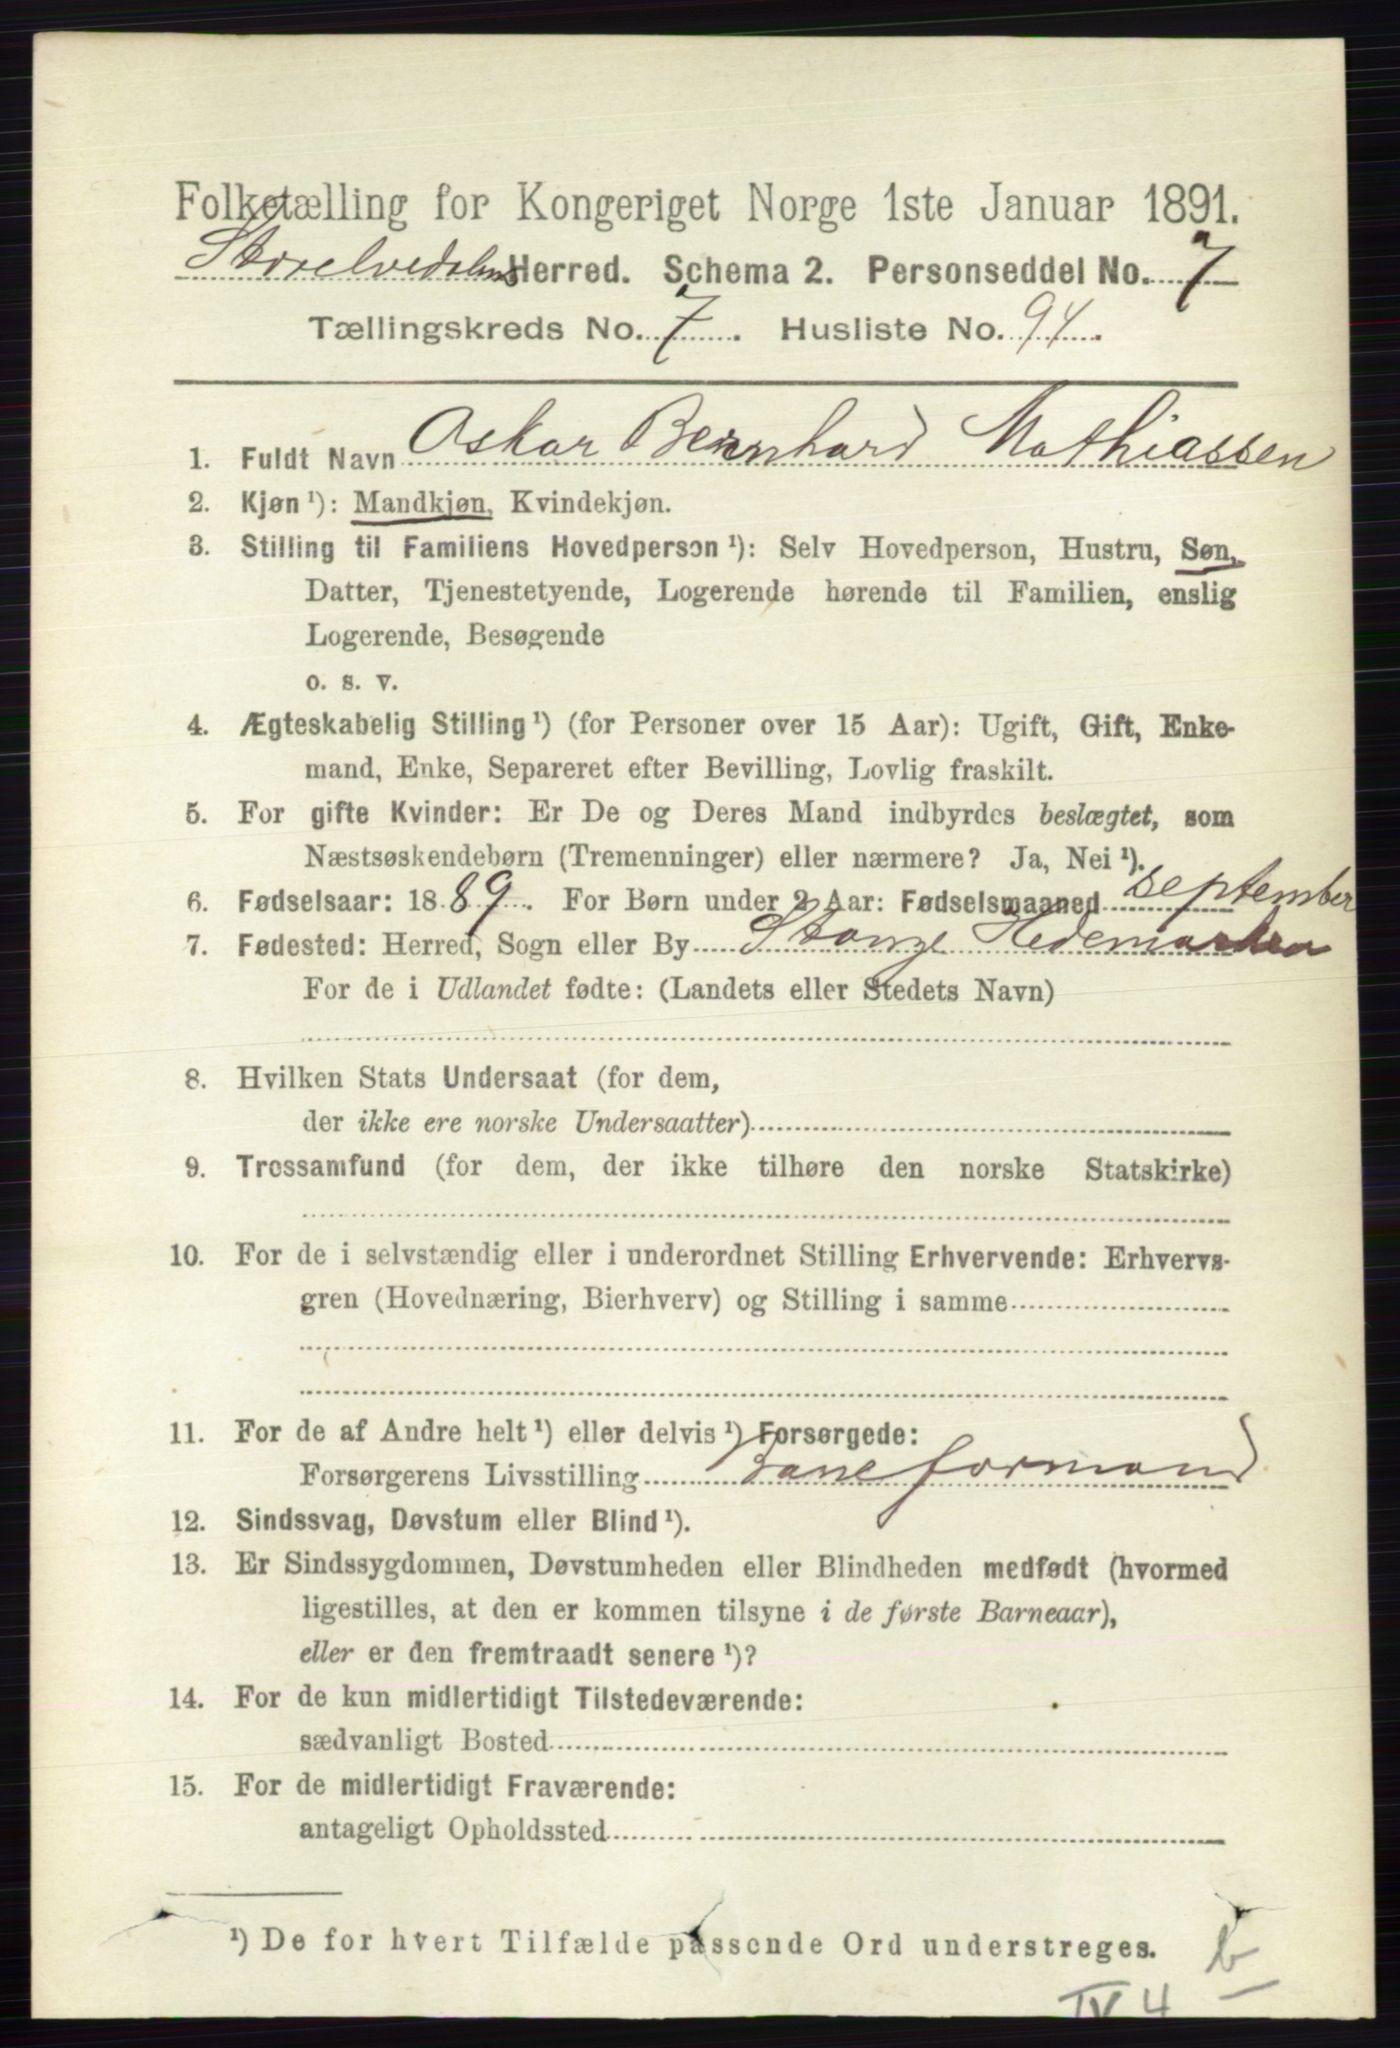 Folketælling for Kongeriget Norge 1ste Januar 1891.
Storelvedalens Herred. Schema 2. Personseddel No. 7
Tællingskreds No. 7. Husliste No. 94.
1. Fuldt Navn Oskar Bernhard Mathiassen
2. Kjøn ¹): Mandkjøn, Kvindekjøn.
3. Stilling til Familiens Hovedperson ¹): Selv Hovedperson, Hustru, Søn,
Datter, Tjenestetyende, Logerende hørende til Familien, enslig
Logerende, Besøgende
o. s. v.
4. Ægteskabelig Stilling ¹) (for Personer over 15 Aar): Ugift, Gift, Enke-
mand, Enke, Separeret efter Bevilling, Lovlig fraskilt.
5. For gifte Kvinder: Er De og Deres Mand indbyrdes beslægtet, som
Næstsøskendebørn (Tremenninger) eller nærmere? Ja, Nei ¹).
6. Fødselsaar: 1889. For Børn under 2 Aar: Fødselsmaaned september
7. Fødested: Herred, Sogn eller By Stange Hedemarken
For de i Udlandet fødte: (Landets eller Stedets Navn)
8. Hvilken Stats Undersaat (for dem,
der ikke ere norske Undersaatter)
9. Trossamfund (for dem, der ikke tilhøre den norske Statskirke)
10. For de i selvstændig eller i underordnet Stilling Erhvervende: Erhvervs-
gren (Hovednæring, Bierhverv) og Stilling i samme
11. For de af Andre helt ¹) eller delvis ¹) Forsørgede:
Forsørgerens Livsstilling Baneformand
12. Sindssvag, Døvstum eller Blind ¹).
13. Er Sindssygdommen, Døvstumheden eller Blindheden medfødt (hvormed
ligestilles, at den er kommen tilsyne i de første Barneaar),
eller er den fremtraadt senere ¹)?
14. For de kun midlertidigt Tilstedeværende:
sædvanligt Bosted
15. For de midlertidigt Fraværende:
antageligt Opholdssted
¹) De for hvert Tilfælde passende Ord understreges.
b
IV 4